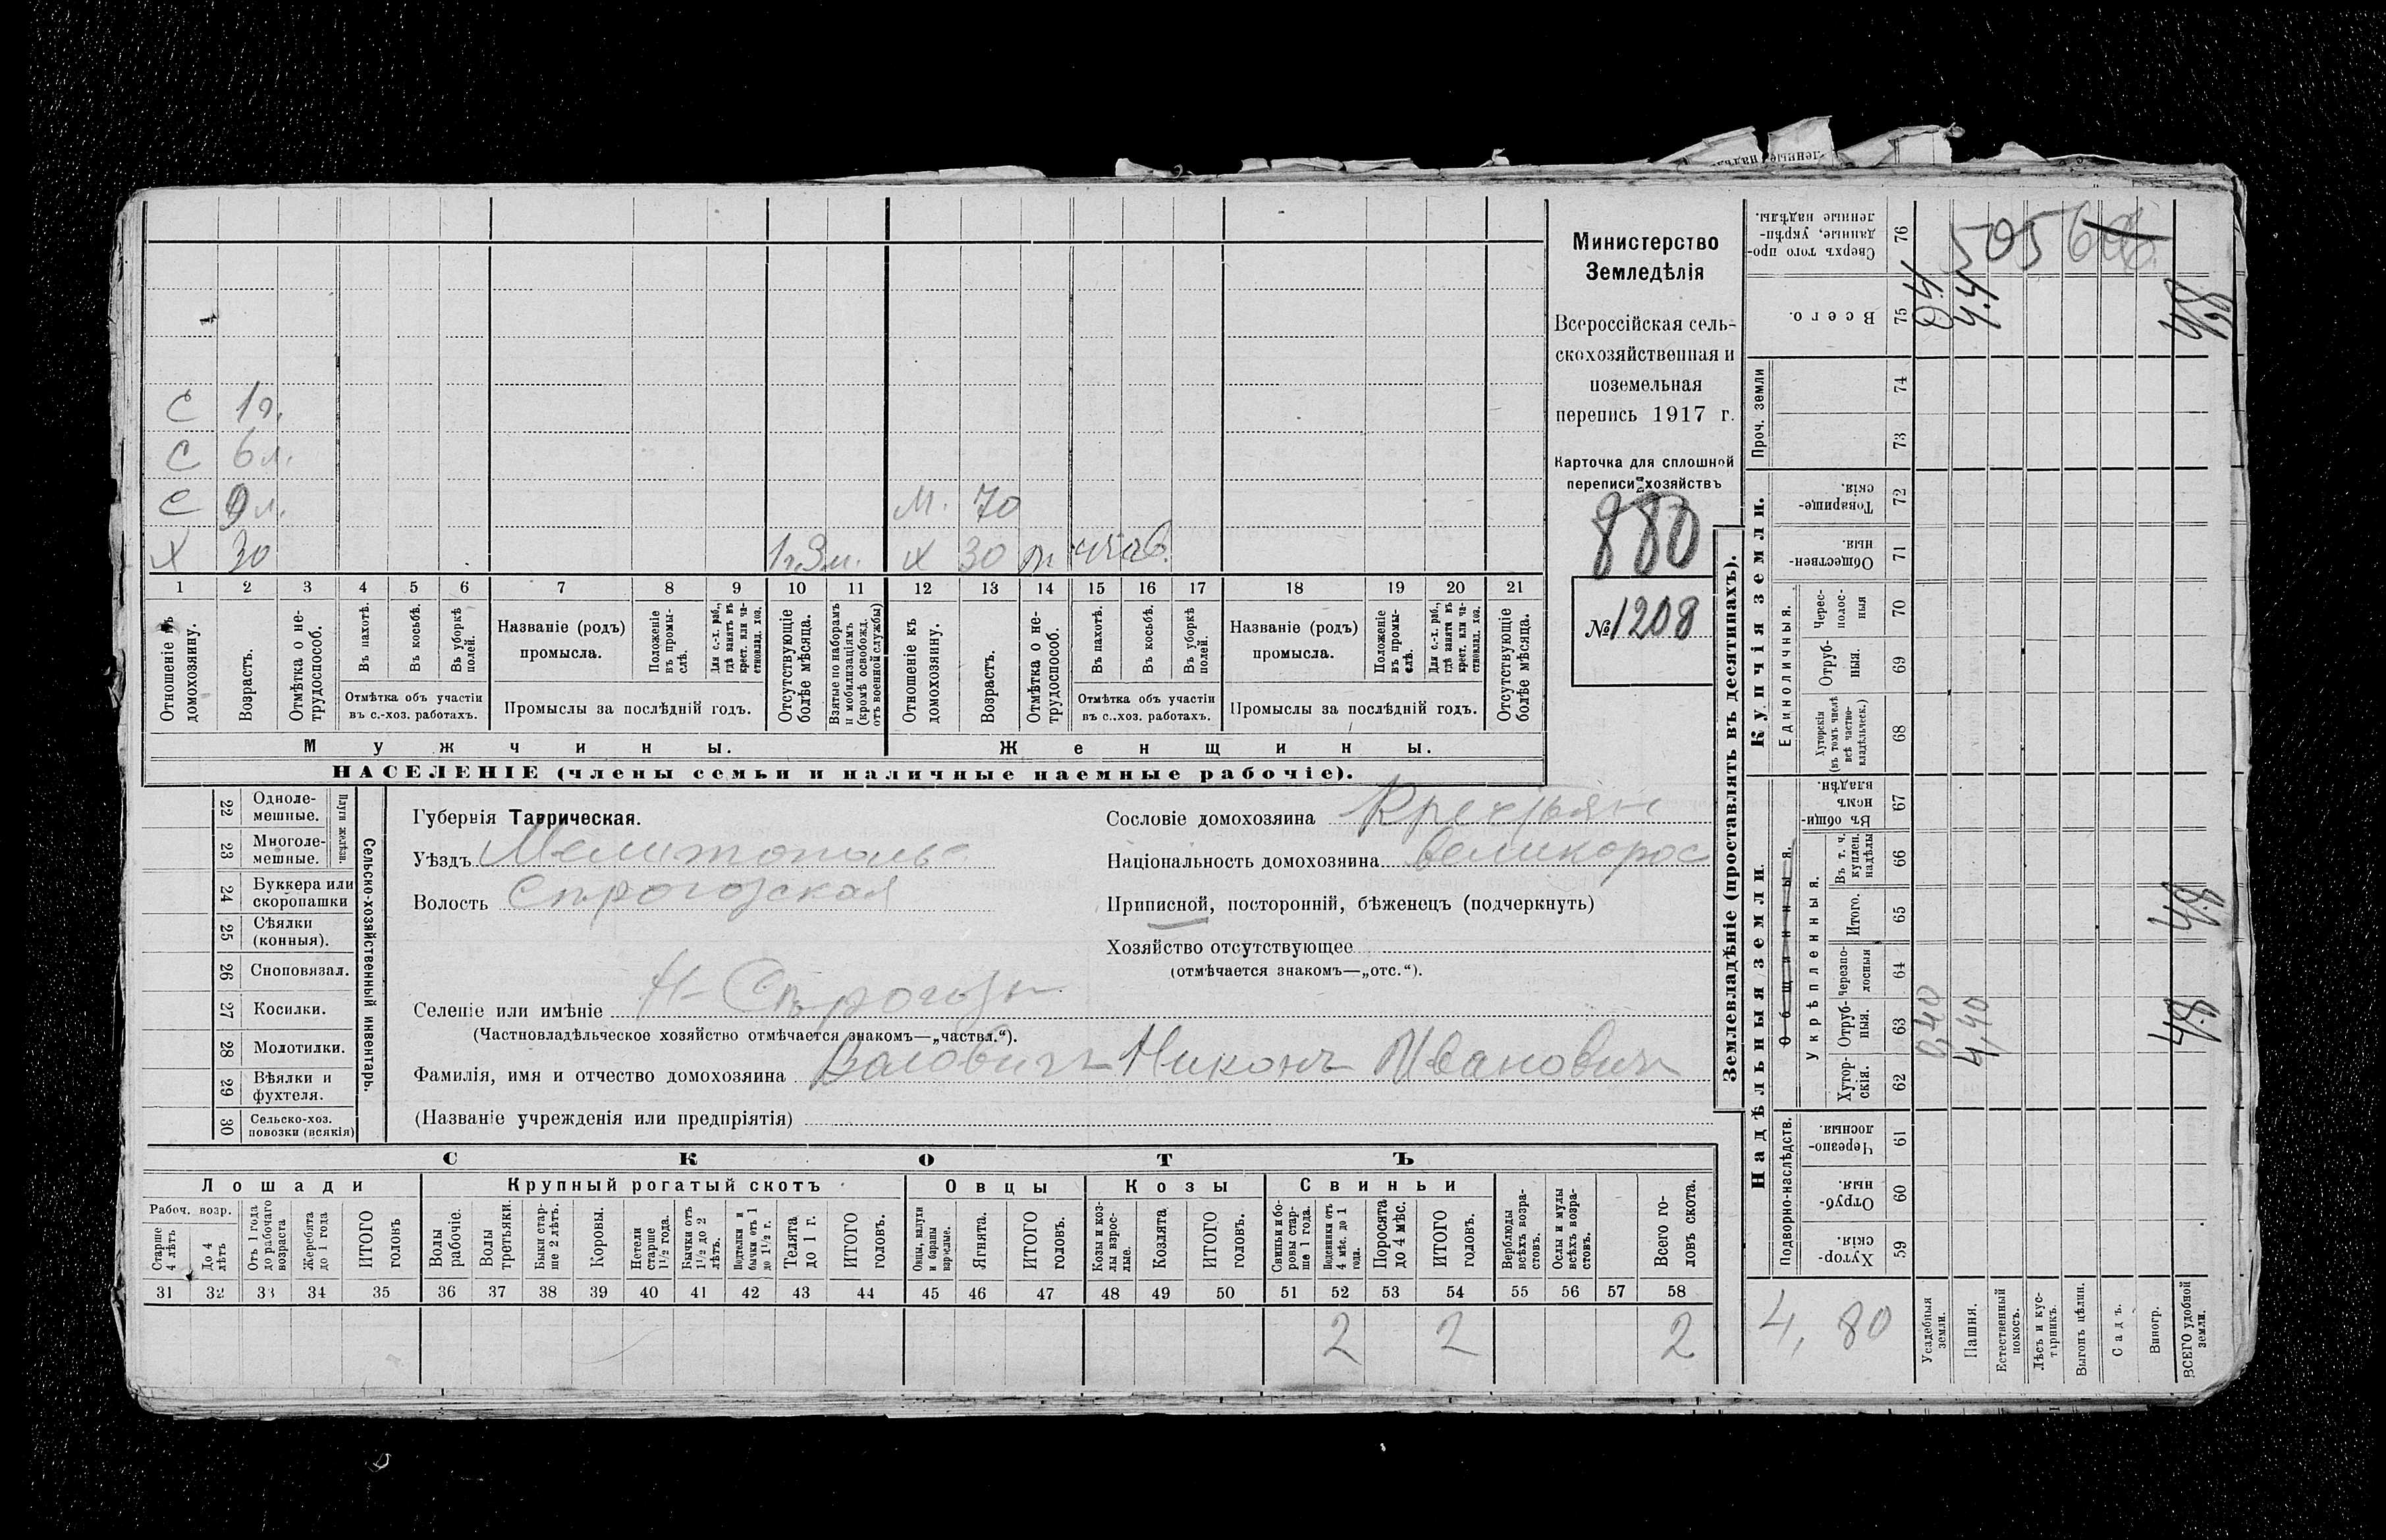 С 1г.
С 6л.
С 9л. М. 70
Х 30 1г.3м. Х 30
1 2 3 4 5 6 7 8 9 10 11 12 13 14 15 16 17 18 19 20 21
Отношеніе къ домохозяину.
Возрастъ.
Отмѣтка о не-трудоспособ.
Въ пахотѣ.
Въ косьбѣ.
Въ уборкѣ полей.
Отмѣтка объ участіи
въ с.-хоз. работахъ.
Названіе (родъ)
промысла.
Положеніе въ промы-слѣ.
Для с.-х. раб., гдѣ занятъ въ крест. или ча-стновлад. хоз.
Промыслы за послѣдній годъ.
Отсутствующіе болѣе мѣсяца.
Взятые по наборамъ и мобилизаціямъ (кромѣ освобожд. отъ военной службы)
Отношеніе къ домохозяину.
Возрастъ.
Отмѣтка о не-трудоспособ.
Въ пахотѣ.
Въ косьбѣ.
Въ уборкѣ полей.
Отмѣтка объ участіи
въ с..хоз. работахъ.
Названіе (родъ)
промысла.
Положеніе въ промы-слѣ.
Для с.-х. раб., гдѣ занята въ крест. или ча-стновлад. хоз.
Промыслы за послѣдній годъ.
Отсутствующіе болѣе мѣсяца.
Мужчины.
Женщины.
НАСЕЛЕНІЕ (члены семьи и наличные наемные рабочіе).
Министерство
Земледѣлія
Всероссійская сель-
скохозяйственная и
поземельная
перепись 1917 г.
Карточка для сплошной
переписи хозяйствъ
880
№ 1208
Сельско-хозяйственный инвентарь.
Плуги желѣзн.
22 Одноле-мешные.
23 Многоле-мешные.
24 Буккера или скоропашки
25 Сѣялки (конныя).
26 Сноповязал.
27 Косилки.
28 Молотилки.
29 Вѣялки и фухтеля.
30 Сельско-хоз. повозки (всякія)
Губернія Таврическая.
Уѣздъ Мелитополь
Волость
Селеніе или имѣніе
(Частновладѣльческое хозяйство отмѣчается знакомъ—„частвл.“).
Фамилія, имя и отчество домохозяина Никонъ Ивановичъ
(Названіе учрежденія или предпріятія)
Сословіе домохозяина Крестьян
Національность домохозяина великорос
Приписной, посторонній, бѣженецъ (подчеркнуть)
Хозяйство отсутствующее
(отмѣчается знакомъ—„отс.“).
СКОТЪ
Лошади
Крупный рогатый скотъ
Овцы
Козы
Свиньи
Рабоч. возр.
Старше 4 лѣтъ
До 4 лѣтъ
Отъ 1 года до рабочаго возраста
Жеребята до 1 года
ИТОГО головъ
Волы рабочіе.
Волы третьяки.
Быки стар-ше 2 лѣтъ.
Коровы.
Нетели старше 1½ года.
Бычки отъ 1½ до 2 лѣтъ.
Подтелки и бычки отъ 1 до 1½ г.
Телята до 1 г.
ИТОГО головъ.
Овцы, валухи и бараны взрослые.
Ягнята.
ИТОГО головъ.
Козы и коз-лы взрос-лые.
Козлята
ИТОГО головъ.
Свиньи и бо-ровы стар-ше 1 года.
Подсвинки отъ 4 мѣс. до 1 года.
Поросята до 4 мѣс.
ИТОГО головъ.
Верблюды всѣхъ возра-стовъ.
Ослы и мулы всѣхъ возра-стовъ.
Всего го-ловъ скота.
31 32 33 34 35 36 37 38 39 40 41 42 43 44 45 46 47 48 49 50 51 52 53 54 55 56 57 58
2 2 2
Землевладѣніе (проставлять въ десятинахъ).
Купчія земли.
Надѣльныя земли.
76 Сверхъ того про-данные, укрѣп-ленные надѣлы.
505
75 Всего.
0.4
4.4
4.8
Проч. земли
74
73
72 Товарище-скія.
71 Обществен-ныя.
Единоличныя.
70 Черес-полос-ныя
69 Отруб-ныя.
68 Хуторскія (въ томъ числѣ всѣ частно-владѣльческ.)
Общинныя.
67 Въ общи-номъ владѣн.
Укрѣпленныя.
66 Въ т. ч. куплен. надѣлы
65 Итого.
4.8
64 Черезпо-лосныя
63 Отруб-ныя.
0,40
4,40
4.8
62 Хутор-скія.
Подворно-наслѣдств.
61 Черезпо-лосныя.
60 Отруб-ныя.
59 Хутор-скія.
4,80
Усадебныя земли.
Пашня.
Естественный покосъ.
Лѣсъ и кус-тарникъ.
Выгонъ цѣлин.
Садъ.
Виногр.
ВСЕГО удобной земли.